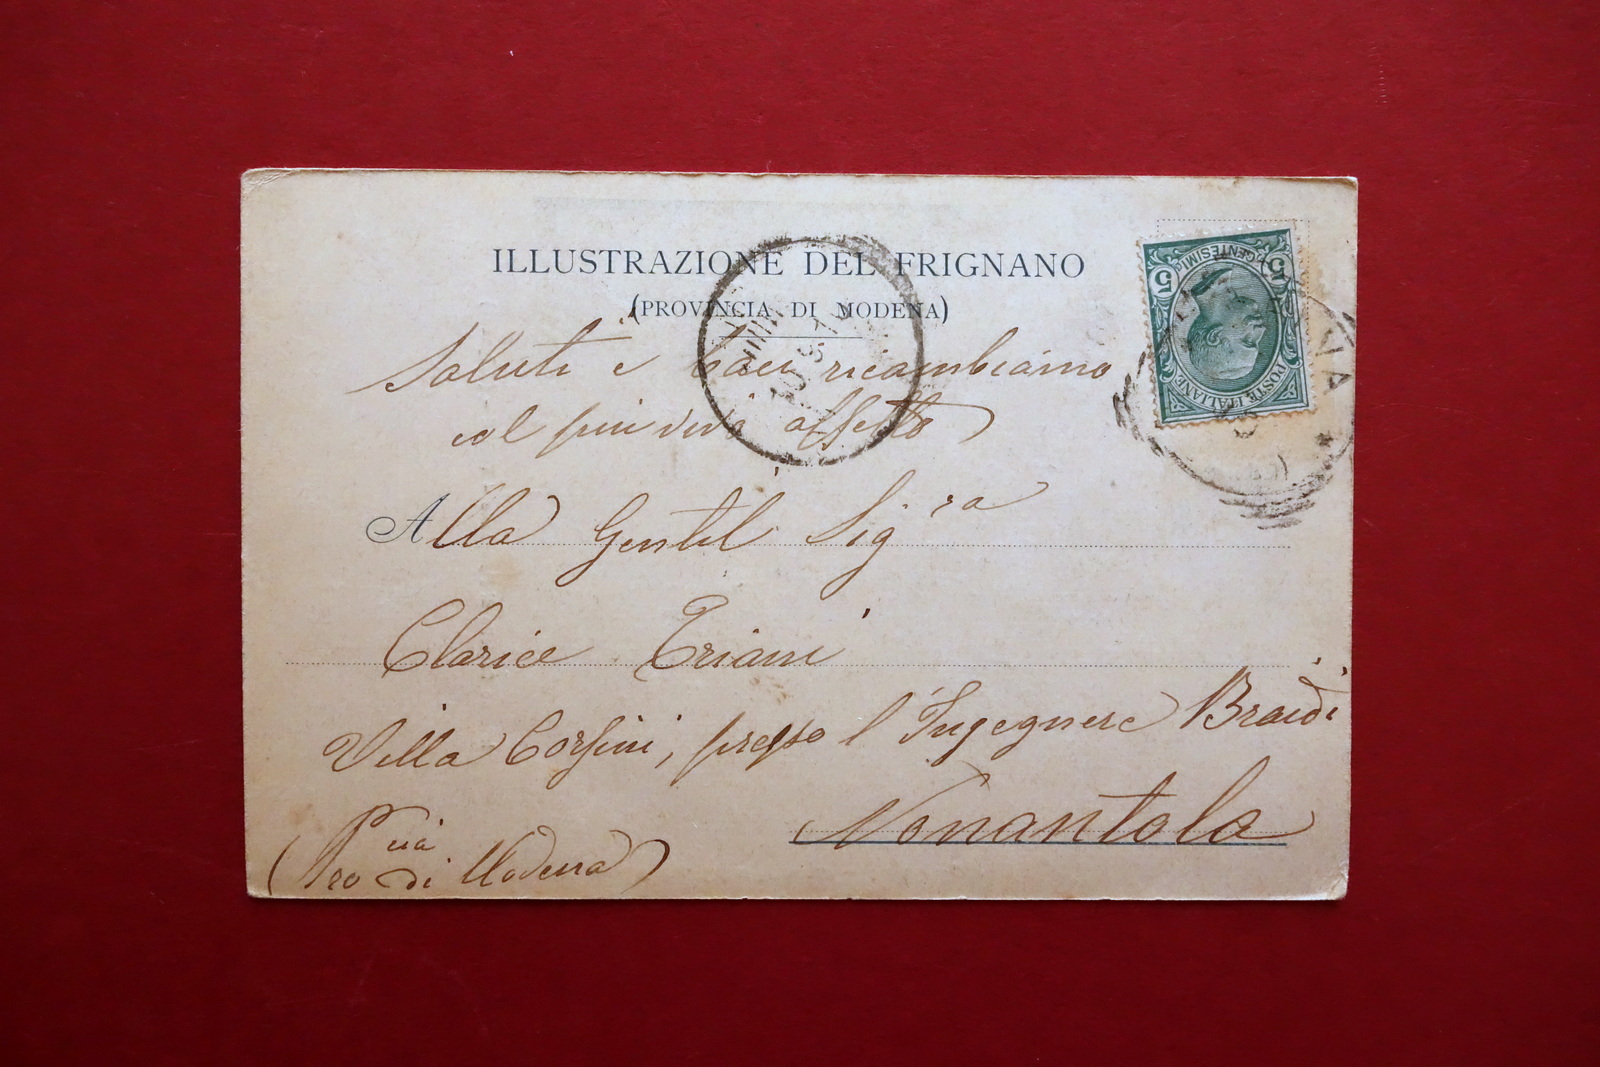 ILLUSTRAZIONE DEL FRIGNANO
(PROVINCIA DI MODENA)
Saluti e baci ricambiamo
col più vivo affetto
Alla Gentil Sig.ra
Clarice Triani
Villa Corsini, presso l'Ingegnere Braidi
Nonantola
(Pro cia di Modena)
5 CENTESIMI 5
POSTE ITALIANE